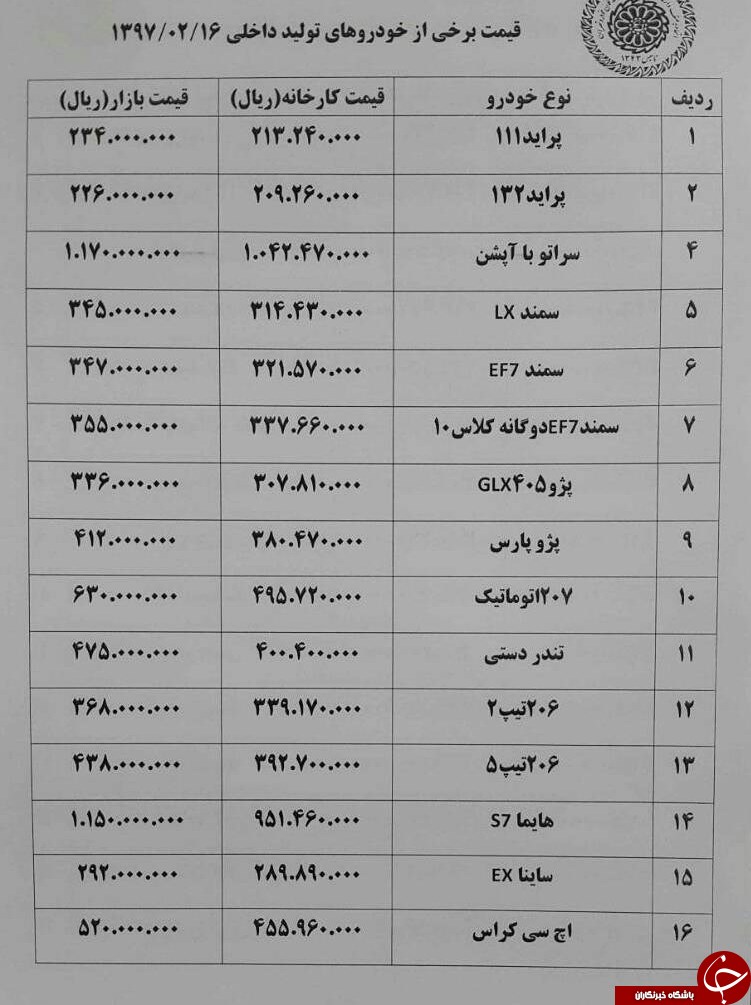 قیمت برخی از خودروهای تولید داخلی ۱۳۹۷/۰۲/۱۶
ردیف نوع خودرو قیمت کارخانه(ریال) قیمت بازار(ریال)
۱ پراید۱۱۱ ۲۱۳.۲۴۰.۰۰۰ ۲۳۴.۰۰۰.۰۰۰
۲ پراید۱۳۲ ۲۰۹.۲۶۰.۰۰۰ ۲۲۶.۰۰۰.۰۰۰
۴ سراتو با آپشن ۱.۰۴۲.۴۷۰.۰۰۰ ۱.۱۷۰.۰۰۰.۰۰۰
۵ سمند LX ۳۱۴.۴۳۰.۰۰۰ ۳۴۵.۰۰۰.۰۰۰
۶ سمند EF7 ۳۲۱.۵۷۰.۰۰۰ ۳۴۷.۰۰۰.۰۰۰
۷ سمندEF7دوگانه کلاس۱۰ ۳۳۷.۶۶۰.۰۰۰ ۳۵۵.۰۰۰.۰۰۰
۸ پژو۴۰۵GLX ۳۰۷.۸۱۰.۰۰۰ ۳۳۶.۰۰۰.۰۰۰
۹ پژو پارس ۳۸۰.۴۷۰.۰۰۰ ۴۱۲.۰۰۰.۰۰۰
۱۰ ۲۰۷اتوماتیک ۴۹۵.۷۲۰.۰۰۰ ۶۳۰.۰۰۰.۰۰۰
۱۱ تندر دستی ۴۰۰.۴۰۰.۰۰۰ ۴۷۵.۰۰۰.۰۰۰
۱۲ ۲۰۶تیپ۲ ۳۳۹.۱۷۰.۰۰۰ ۳۶۸.۰۰۰.۰۰۰
۱۳ ۲۰۶تیپ۵ ۳۹۲.۷۰۰.۰۰۰ ۴۳۸.۰۰۰.۰۰۰
۱۴ هایما S7 ۹۵۱.۴۶۰.۰۰۰ ۱.۱۵۰.۰۰۰.۰۰۰
۱۵ ساینا EX ۲۸۹.۸۹۰.۰۰۰ ۲۹۲.۰۰۰.۰۰۰
۱۶ اچ سی کراس ۴۵۵.۹۶۰.۰۰۰ ۵۲۰.۰۰۰.۰۰۰
باشگاه خبرنگاران